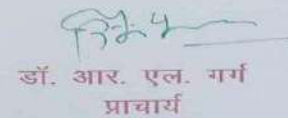 डॉ. आर. एल. गर्ग
प्राचार्य